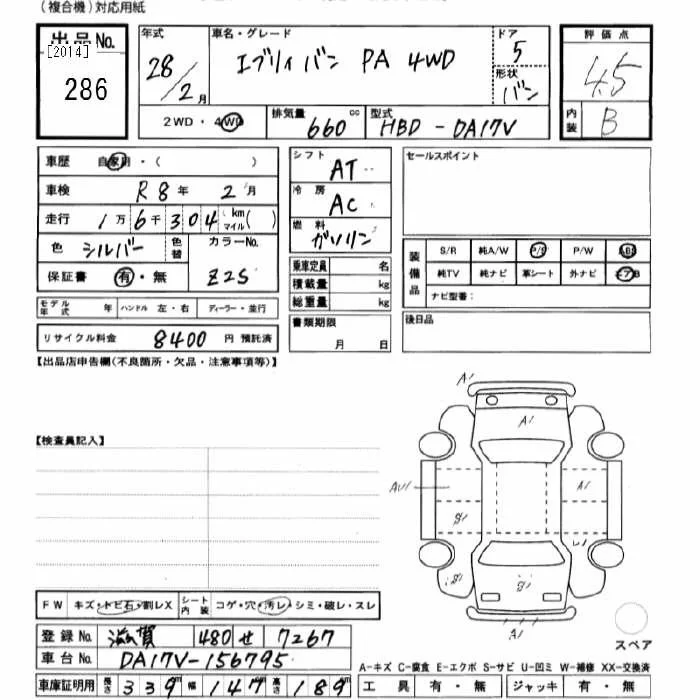 (複合機)対応用紙
出品No. [2014] 286
年式 28/2月
車名・グレード エブリィ バン PA 4WD
ドア 5
形状 バン
評価点 4.5
内装 B
2WD・4WD
排気量 660 cc
型式 HBD-DA17V
車歴 自家用・( )
車検 R8年 2月
走行 1万6千304 km マイル( )
色 シルバー 色替 カラーNo.
保証書 有・無 Z2S
モデル年式 年 ハンドル 左・右 ディーラー・並行
リサイクル料金 8400 円 預託済
シフト AT
冷房 AC
燃料 ガソリン
乗車定員 名
積載量 kg
総重量 kg
書類期限 月 日
セールスポイント
装備品 S/R 純A/W P/S P/W ABS
純TV 純ナビ 革シート 外ナビ エアB
ナビ型番:
後日品
【出品店申告欄(不良箇所・欠品・注意事項等)】
【検査員記入】
A1
A1
AU1
A1
A1
FW キズ・トビ石・割レX シート内装 コゲ・穴・汚レ・シミ・破レ・スレ
登録No. 滋賀 480 せ 7267
車台No. DA17V-156795
車庫証明用 長さ 339 幅 147 高さ 189
スペア
A-キズ C-腐食 E-エクボ S-サビ U-凹ミ W-補修 XX-交換済
工具 有・無 ジャッキ 有・無